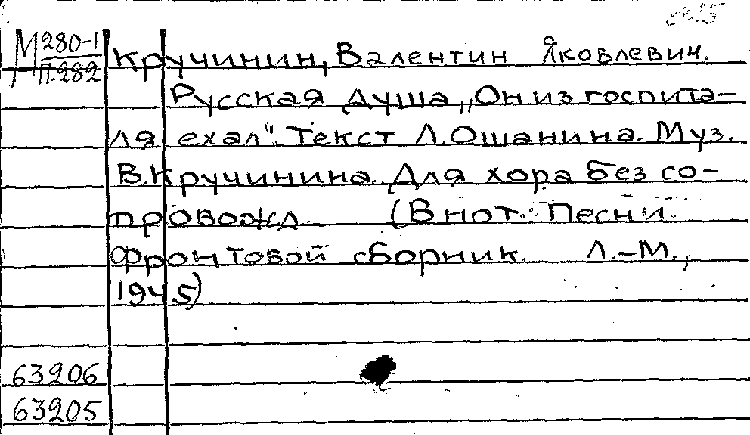 М 280-1
П.282
Кручинин, Валентин Яковлевич.
Русская душа „Он из госпита-
ля ехал". Текст Л.Ошанина. Муз.
В.Кручинина. Для хора без со-
провожд. (В нот.: Песни.
Фронтовой сборник. Л.-М.,
1945)
63206
63205